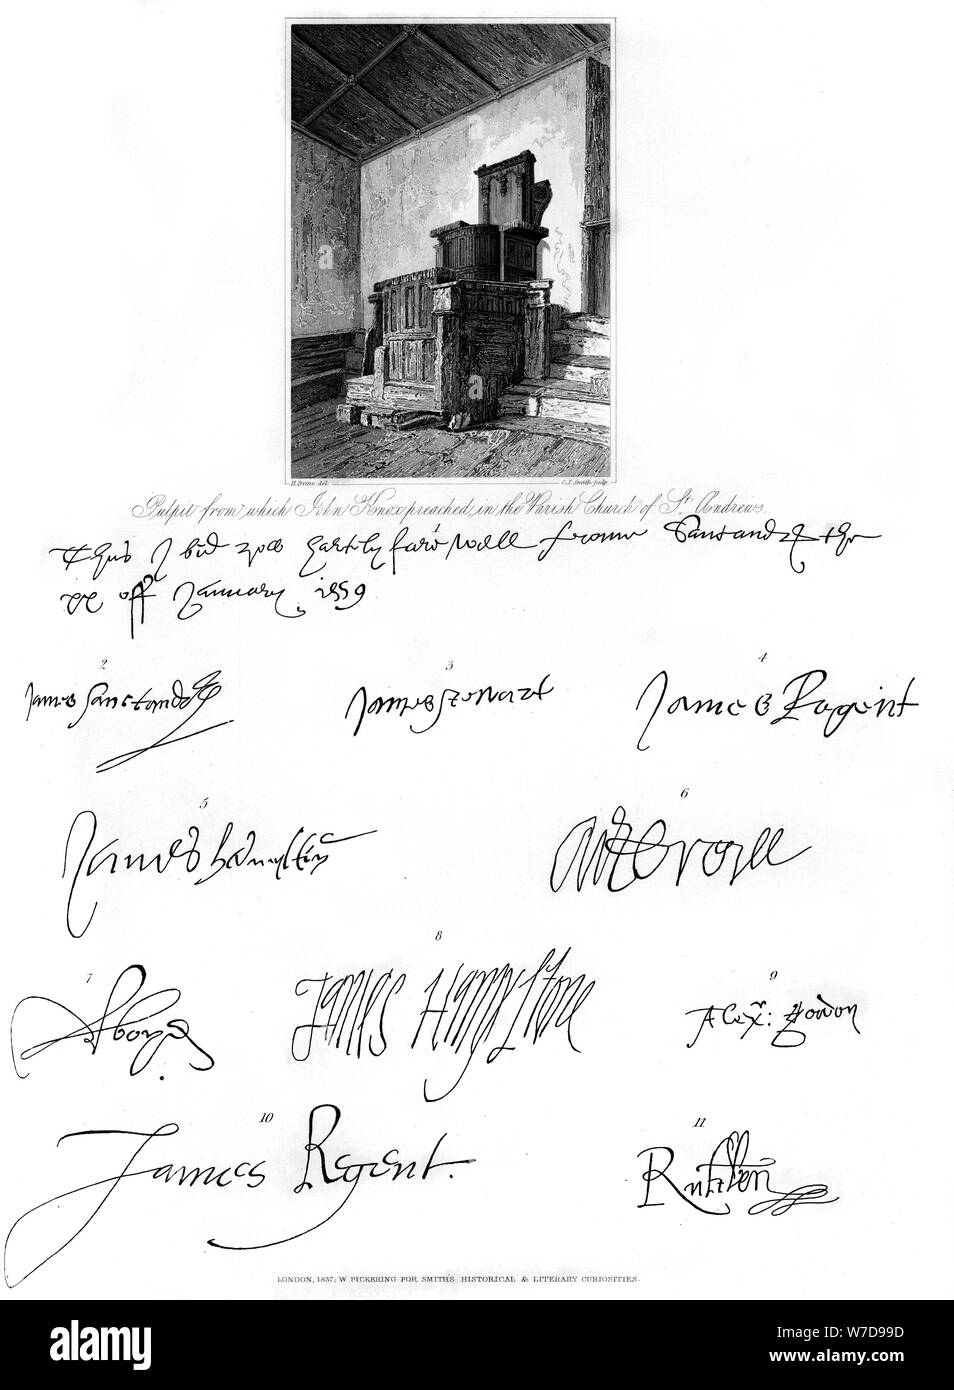 H. Irvine del.
C.J. Smith sculp.
Pulpit from which John Knox preached in the Parish Church of St. Andrews.
Thus I bid you hartely fair well frome Sanctand the
xx off January 1559
2
3
4
James Sanctand
James Stewart
James Regent
5
6
James hamyltn
7
8
9
Aboyd
James Hamyltone
Alexr: Gordon
10
11
James Regent.
Ruthven
LONDON, 1837; W PICKERING FOR SMITH'S HISTORICAL & LITERARY CURIOSITIES.
a
a
a
a
alamy
Image ID: W7D99D
www.alamy.com